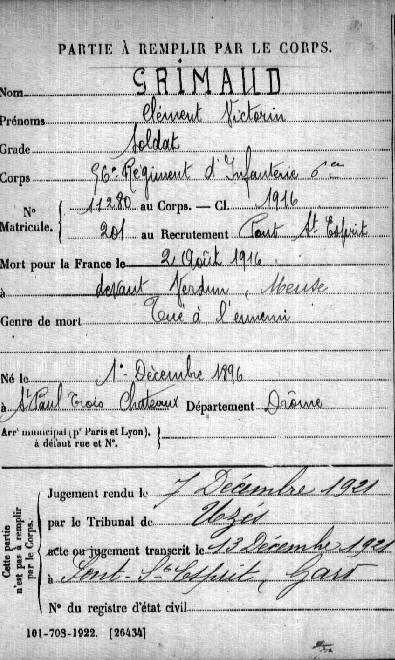 PARTIE À REMPLIR PAR LE CORPS.
Nom GRIMAUD
Prénoms Clément Victorin
Grade Soldat
Corps 96e Régiment d'Infanterie 6e Cie
N° Matricule. 11280 au Corps. — Cl. 1916
201 au Recrutement Pont St Esprit
Mort pour la France le 2 Août 1916
à devant Verdun, Meuse
Genre de mort Tué à l'ennemi
Né le 1er Décembre 1896
à St Paul Trois Chateaux Département Drôme
Arrt municipal (pr Paris et Lyon), à défaut rue et N°.
Cette partie n'est pas à remplir par le Corps.
Jugement rendu le 7 Décembre 1921
par le Tribunal de Uzès
acte ou jugement transcrit le 13 Décembre 1921
à Pont-St-Esprit, Gard
N° du registre d'état civil
101-708-1922. [26434]